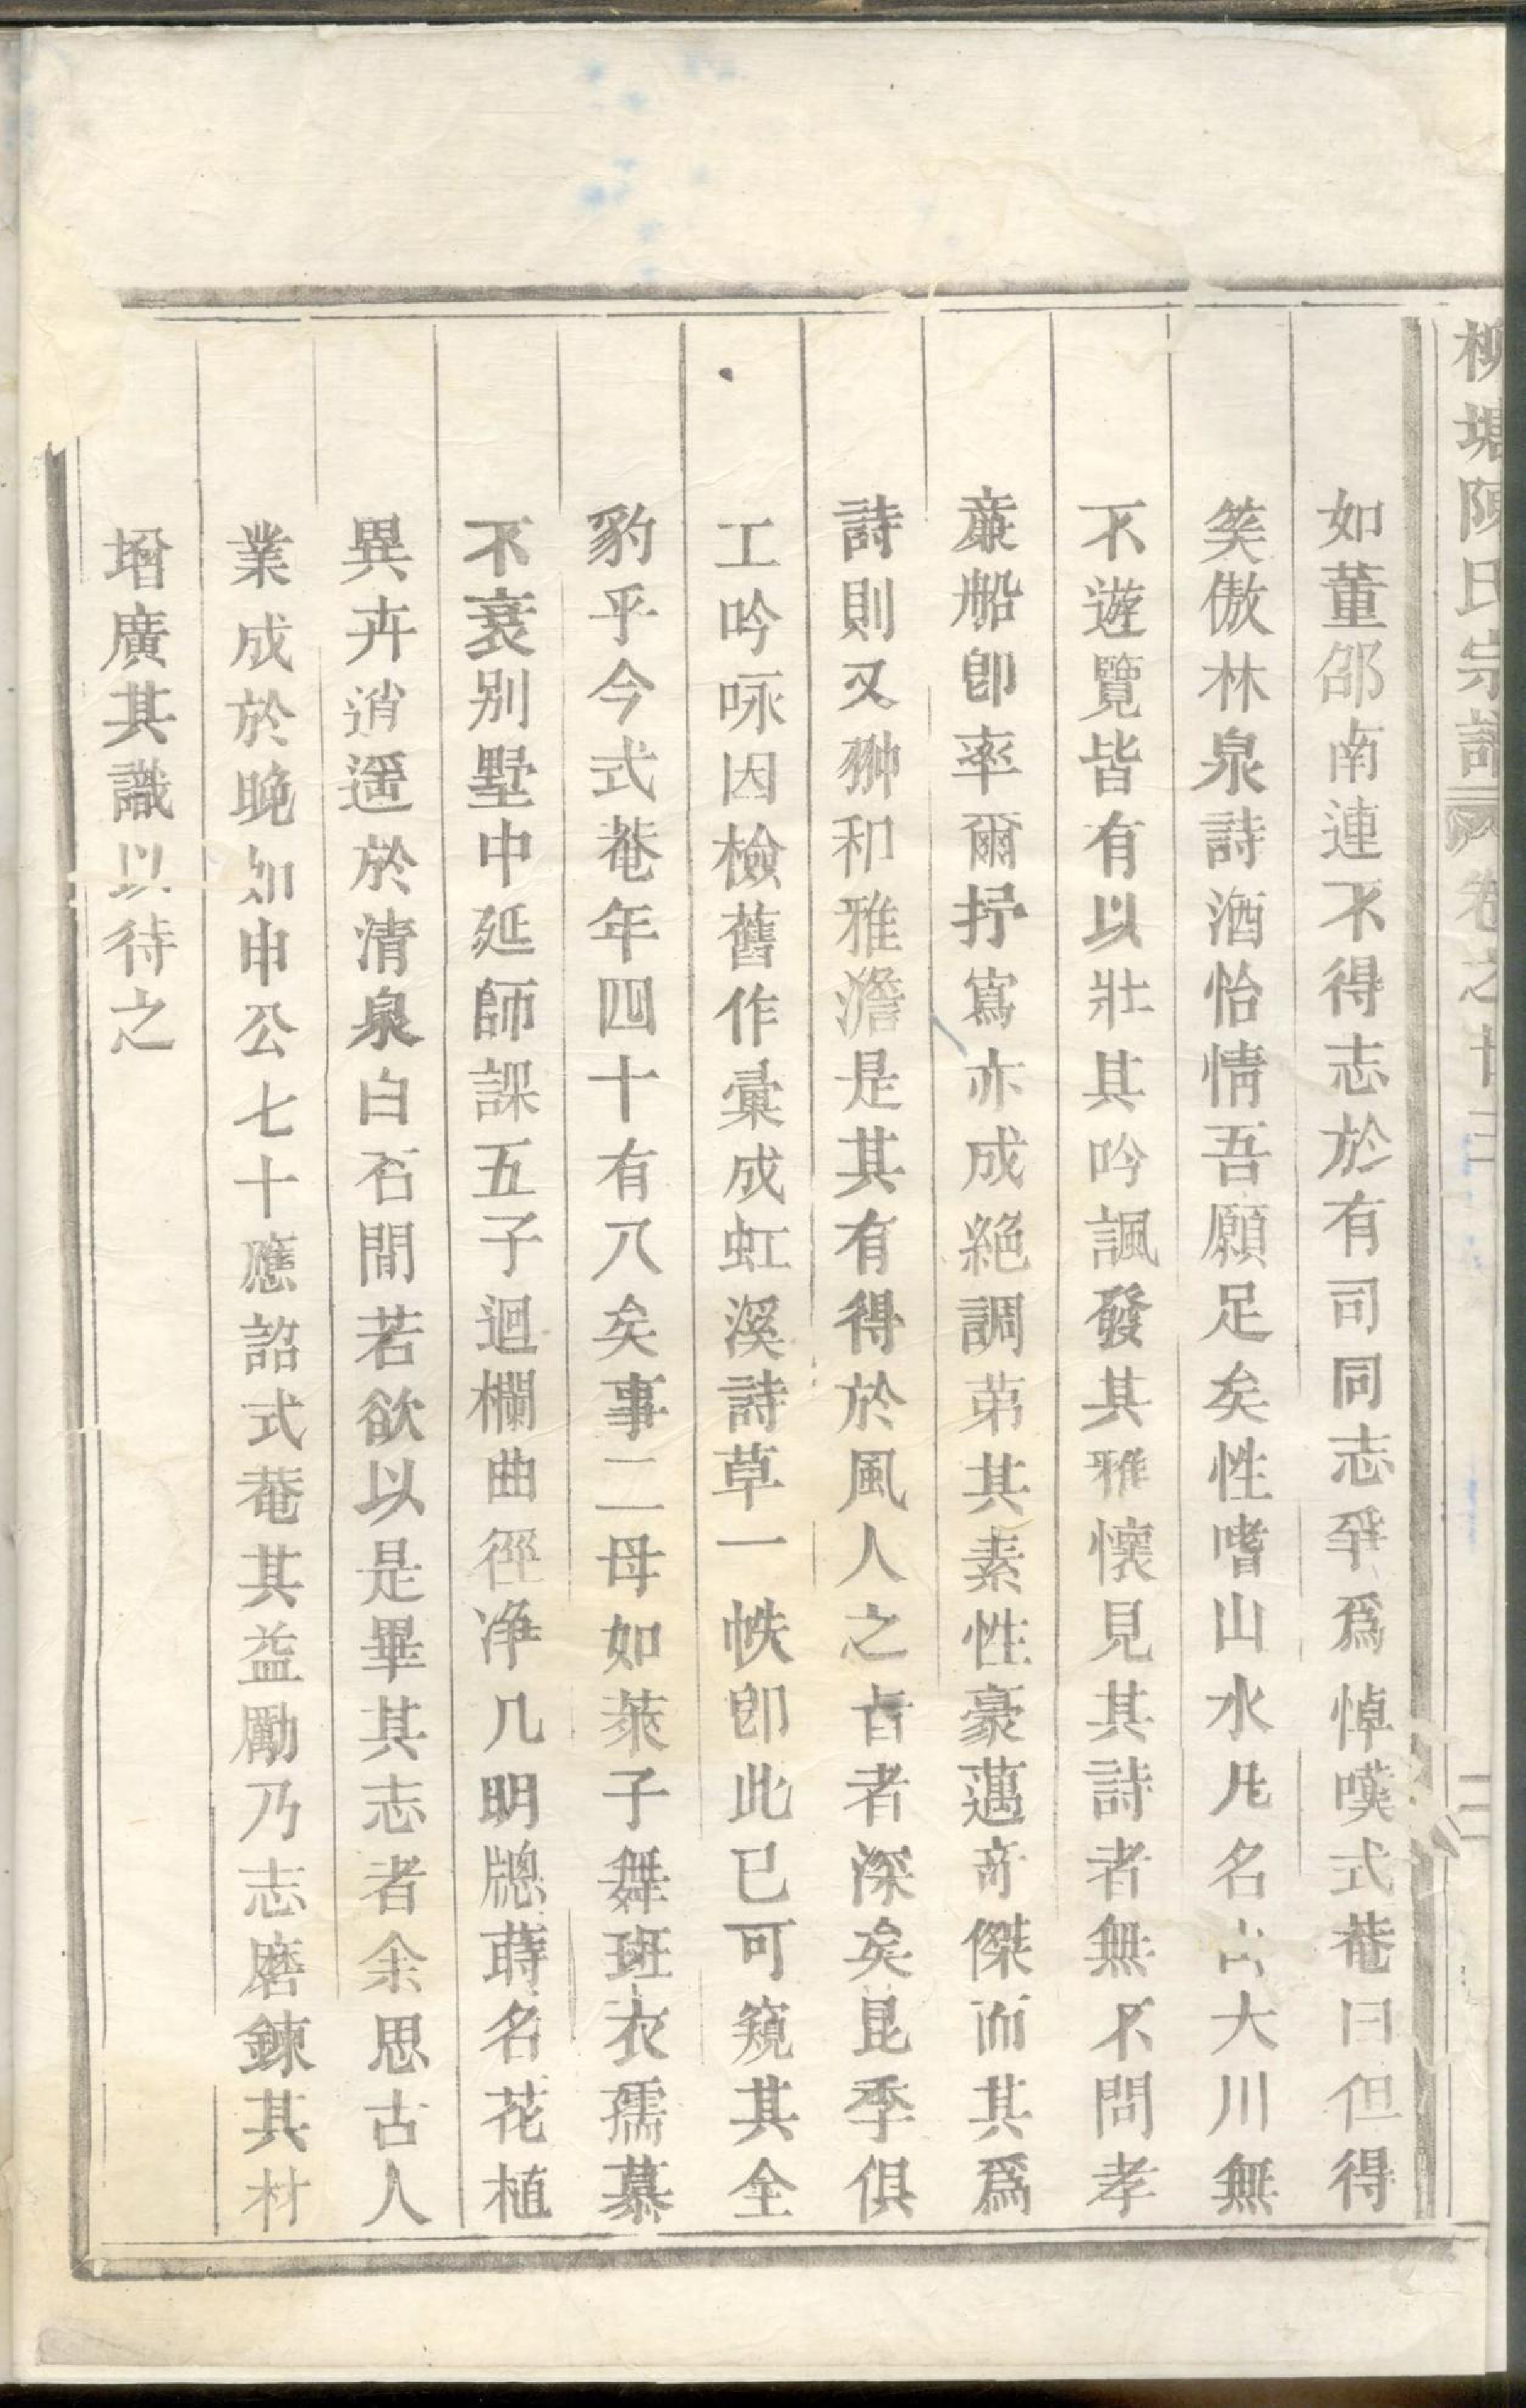 柳塘陳氏宗譜 卷之廿二 二
如董邵南連不得志於有司同志爭爲悼嘆式菴曰但得
笑傲林泉詩酒怡情吾願足矣性嗜山水凡名山大川無
不遊覽皆有以壯其吟諷發其雅懷見其詩者無不問孝
亷船卽率爾抒寫亦成絶調苐其素性豪邁竒傑而其爲
詩則又翀和雅澹是其有得於風人之旨者深矣昆季俱
工吟咏因檢舊作彙成虹溪詩草一帙卽此已可窺其全
豹乎今式菴年四十有八矣事二母如萊子舞班衣孺慕
不衰别墅中延師課五子迴欄曲徑净几明牕蒔名花植
異卉逍遥於清泉白石間若欲以是畢其志者余思古人
業成於晚如申公七十應詔式菴其益勵乃志磨鍊其材
增廣其識以待之